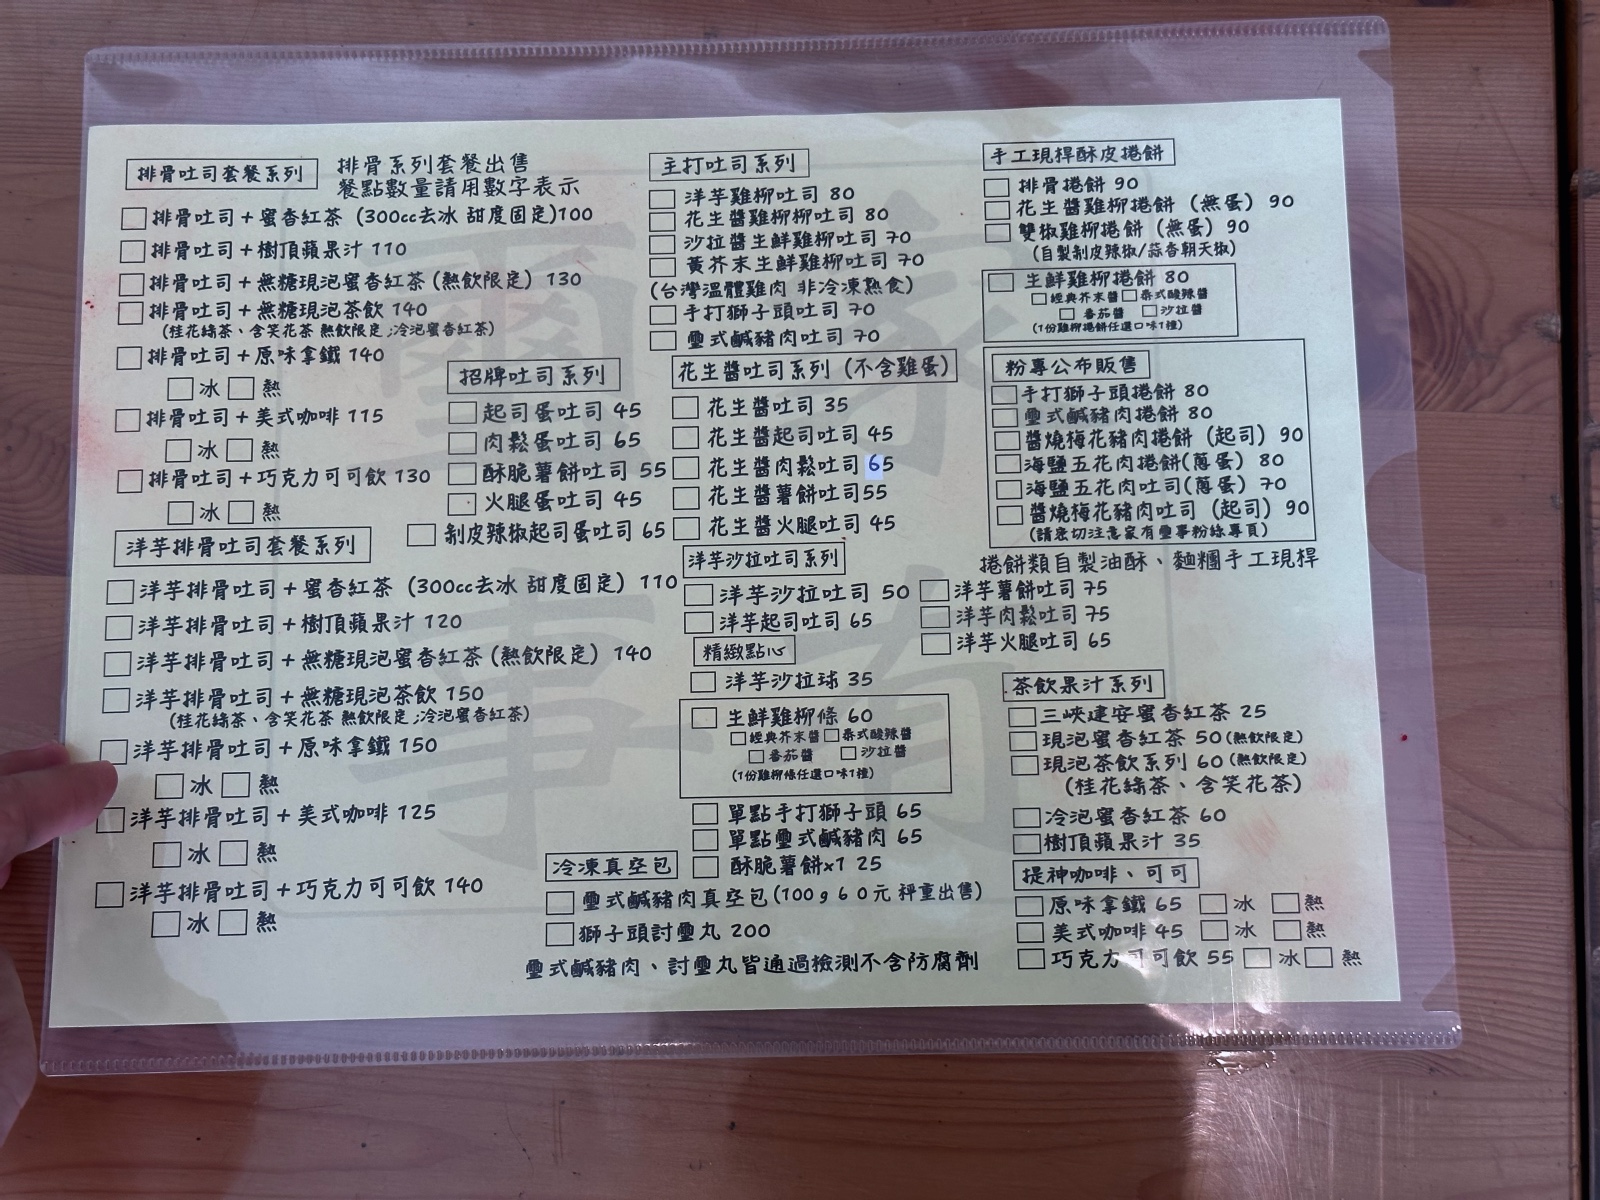 排骨吐司套餐系列
排骨系列套餐出售
餐點數量請用數字表示
排骨吐司+蜜香紅茶 (300cc去冰 甜度固定)100
排骨吐司+樹頂蘋果汁 110
排骨吐司+無糖現泡蜜香紅茶(熱飲限定) 130
排骨吐司+無糖現泡茶飲 140
(桂花綠茶、含笑花茶 熱飲限定;冷泡蜜香紅茶)
排骨吐司+原味拿鐵 140
冰 熱
排骨吐司+美式咖啡 115
冰 熱
排骨吐司+巧克力可可飲 130
冰 熱
招牌吐司系列
起司蛋吐司 45
肉鬆蛋吐司 65
酥脆薯餅吐司 55
火腿蛋吐司 45
剝皮辣椒起司蛋吐司 65
洋芋排骨吐司套餐系列
洋芋排骨吐司+蜜香紅茶 (300cc去冰 甜度固定) 110
洋芋排骨吐司+樹頂蘋果汁 120
洋芋排骨吐司+無糖現泡蜜香紅茶(熱飲限定) 140
洋芋排骨吐司+無糖現泡茶飲 150
(桂花綠茶、含笑花茶 熱飲限定;冷泡蜜香紅茶)
洋芋排骨吐司+原味拿鐵 150
冰 熱
洋芋排骨吐司+美式咖啡 125
冰 熱
洋芋排骨吐司+巧克力可可飲 140
冰 熱
主打吐司系列
洋芋雞柳吐司 80
花生醬雞柳柳吐司 80
沙拉醬生鮮雞柳吐司 70
黃芥末生鮮雞柳吐司 70
(台灣溫體雞肉 非冷凍熟食)
手打獅子頭吐司 70
璽式鹹豬肉吐司 70
花生醬吐司系列 (不含雞蛋)
花生醬吐司 35
花生醬起司吐司 45
花生醬肉鬆吐司 65
花生醬薯餅吐司55
花生醬火腿吐司 45
洋芋沙拉吐司系列
洋芋沙拉吐司 50
洋芋起司吐司 65
洋芋薯餅吐司 75
洋芋肉鬆吐司 75
洋芋火腿吐司 65
精緻點心
洋芋沙拉球 35
生鮮雞柳條 60
經典芥末醬 泰式酸辣醬
番茄醬 沙拉醬
(1份雞柳條任選口味1種)
單點手打獅子頭 65
單點璽式鹹豬肉 65
酥脆薯餅x1 25
冷凍真空包
璽式鹹豬肉真空包(100g 60元 秤重出售)
獅子頭討璽丸 200
璽式鹹豬肉、討璽丸皆通過檢測不含防腐劑
手工現桿酥皮捲餅
排骨捲餅 90
花生醬雞柳捲餅 (無蛋) 90
雙椒雞柳捲餅 (無蛋) 90
(自製剝皮辣椒/蒜香朝天椒)
生鮮雞柳捲餅 80
經典芥末醬 泰式酸辣醬
番茄醬 沙拉醬
(1份雞柳捲餅任選口味1種)
粉專公布販售
手打獅子頭捲餅 80
璽式鹹豬肉捲餅 80
醬燒梅花豬肉捲餅 (起司) 90
海鹽五花肉捲餅(蔥蛋) 80
海鹽五花肉吐司(蔥蛋) 70
醬燒梅花豬肉吐司 (起司) 90
(請密切注意家有璽事粉絲專頁)
捲餅類自製油酥、麵糰手工現桿
茶飲果汁系列
三峽建安蜜香紅茶 25
現泡蜜香紅茶 50(熱飲限定)
現泡茶飲系列 60(熱飲限定)
(桂花綠茶、含笑花茶)
冷泡蜜香紅茶 60
樹頂蘋果汁 35
提神咖啡、可可
原味拿鐵 65 冰 熱
美式咖啡 45 冰 熱
巧克力可可飲 55 冰 熱
家有璽事